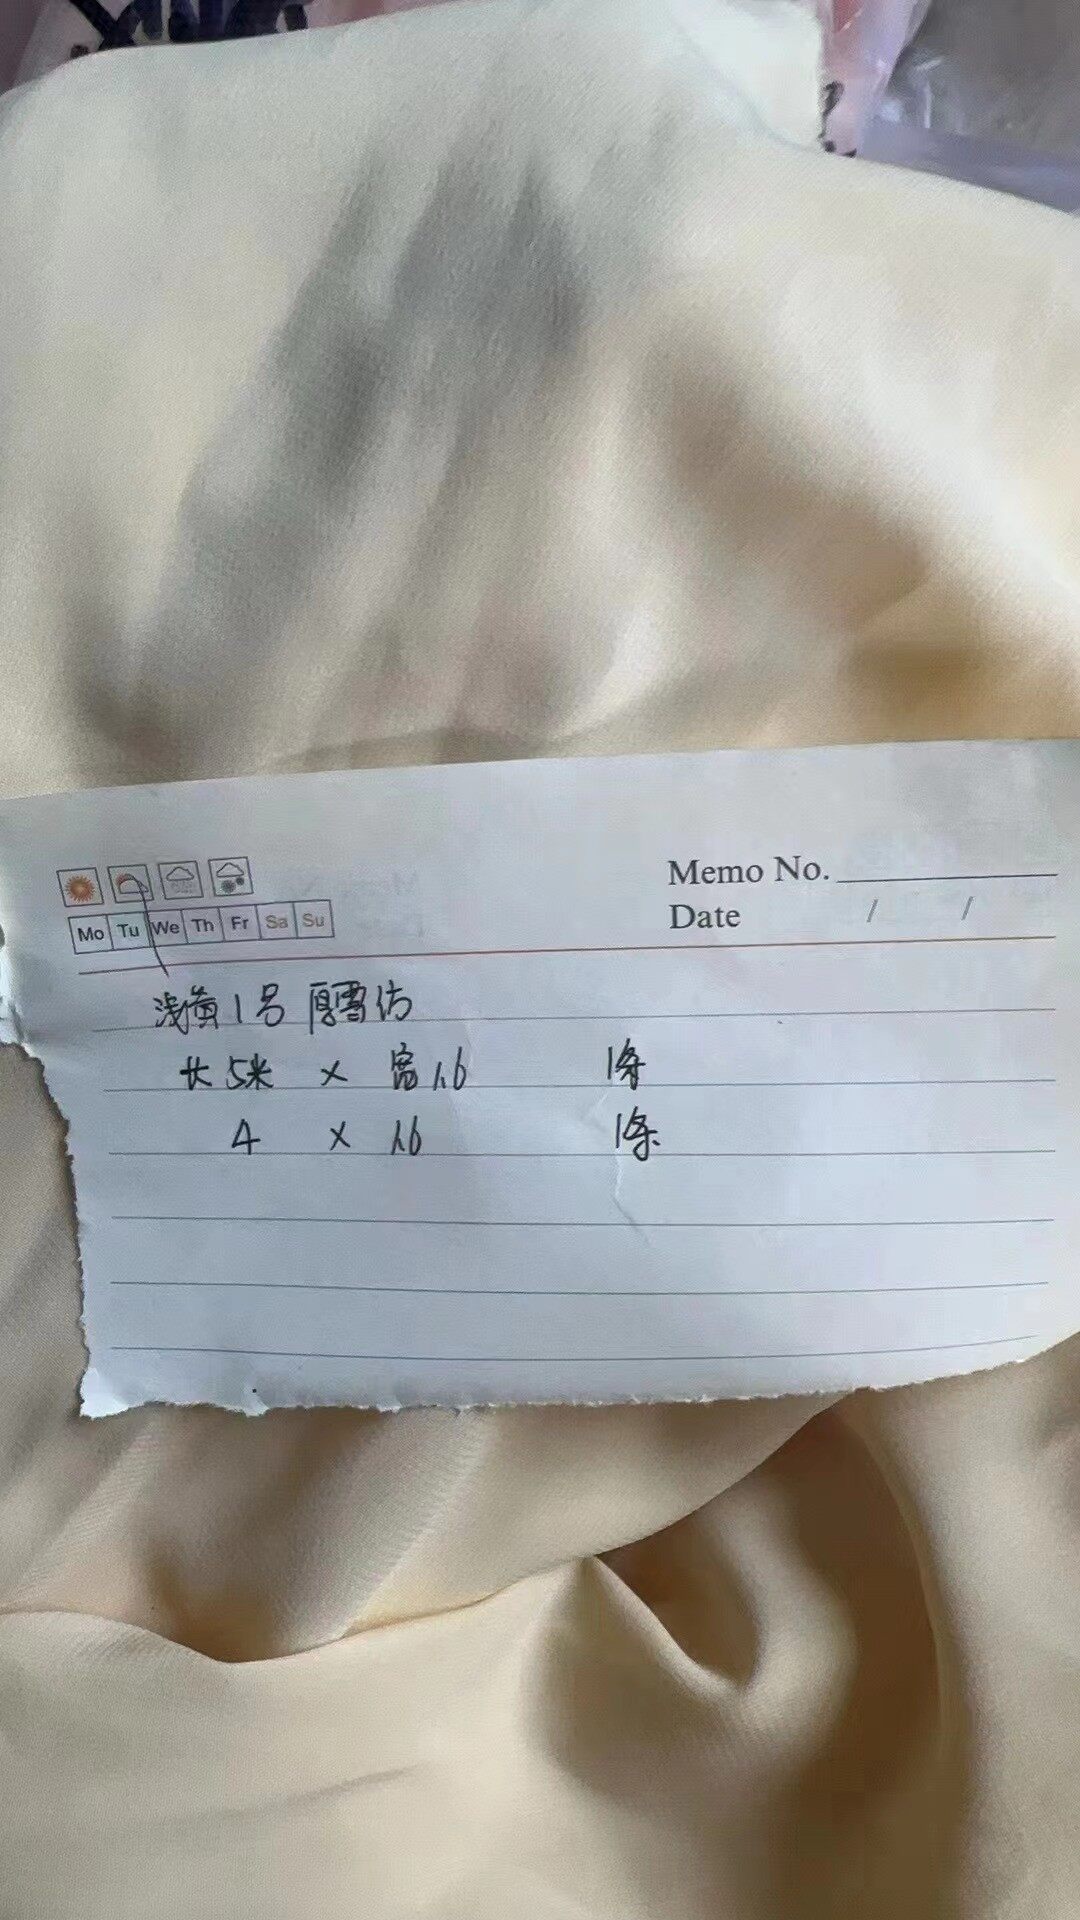 Memo No.
Date / /
Mo Tu We Th Fr Sa Su
浅黄1号 厚雪仿
长5米 × 宽1.6 1条
4 × 1.6 1条